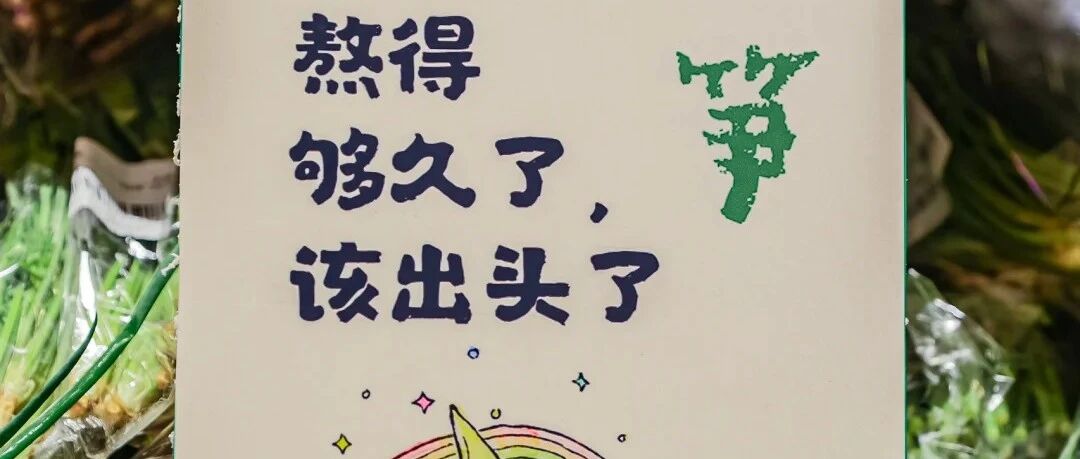 熬得
够久了，
该出头了
笋